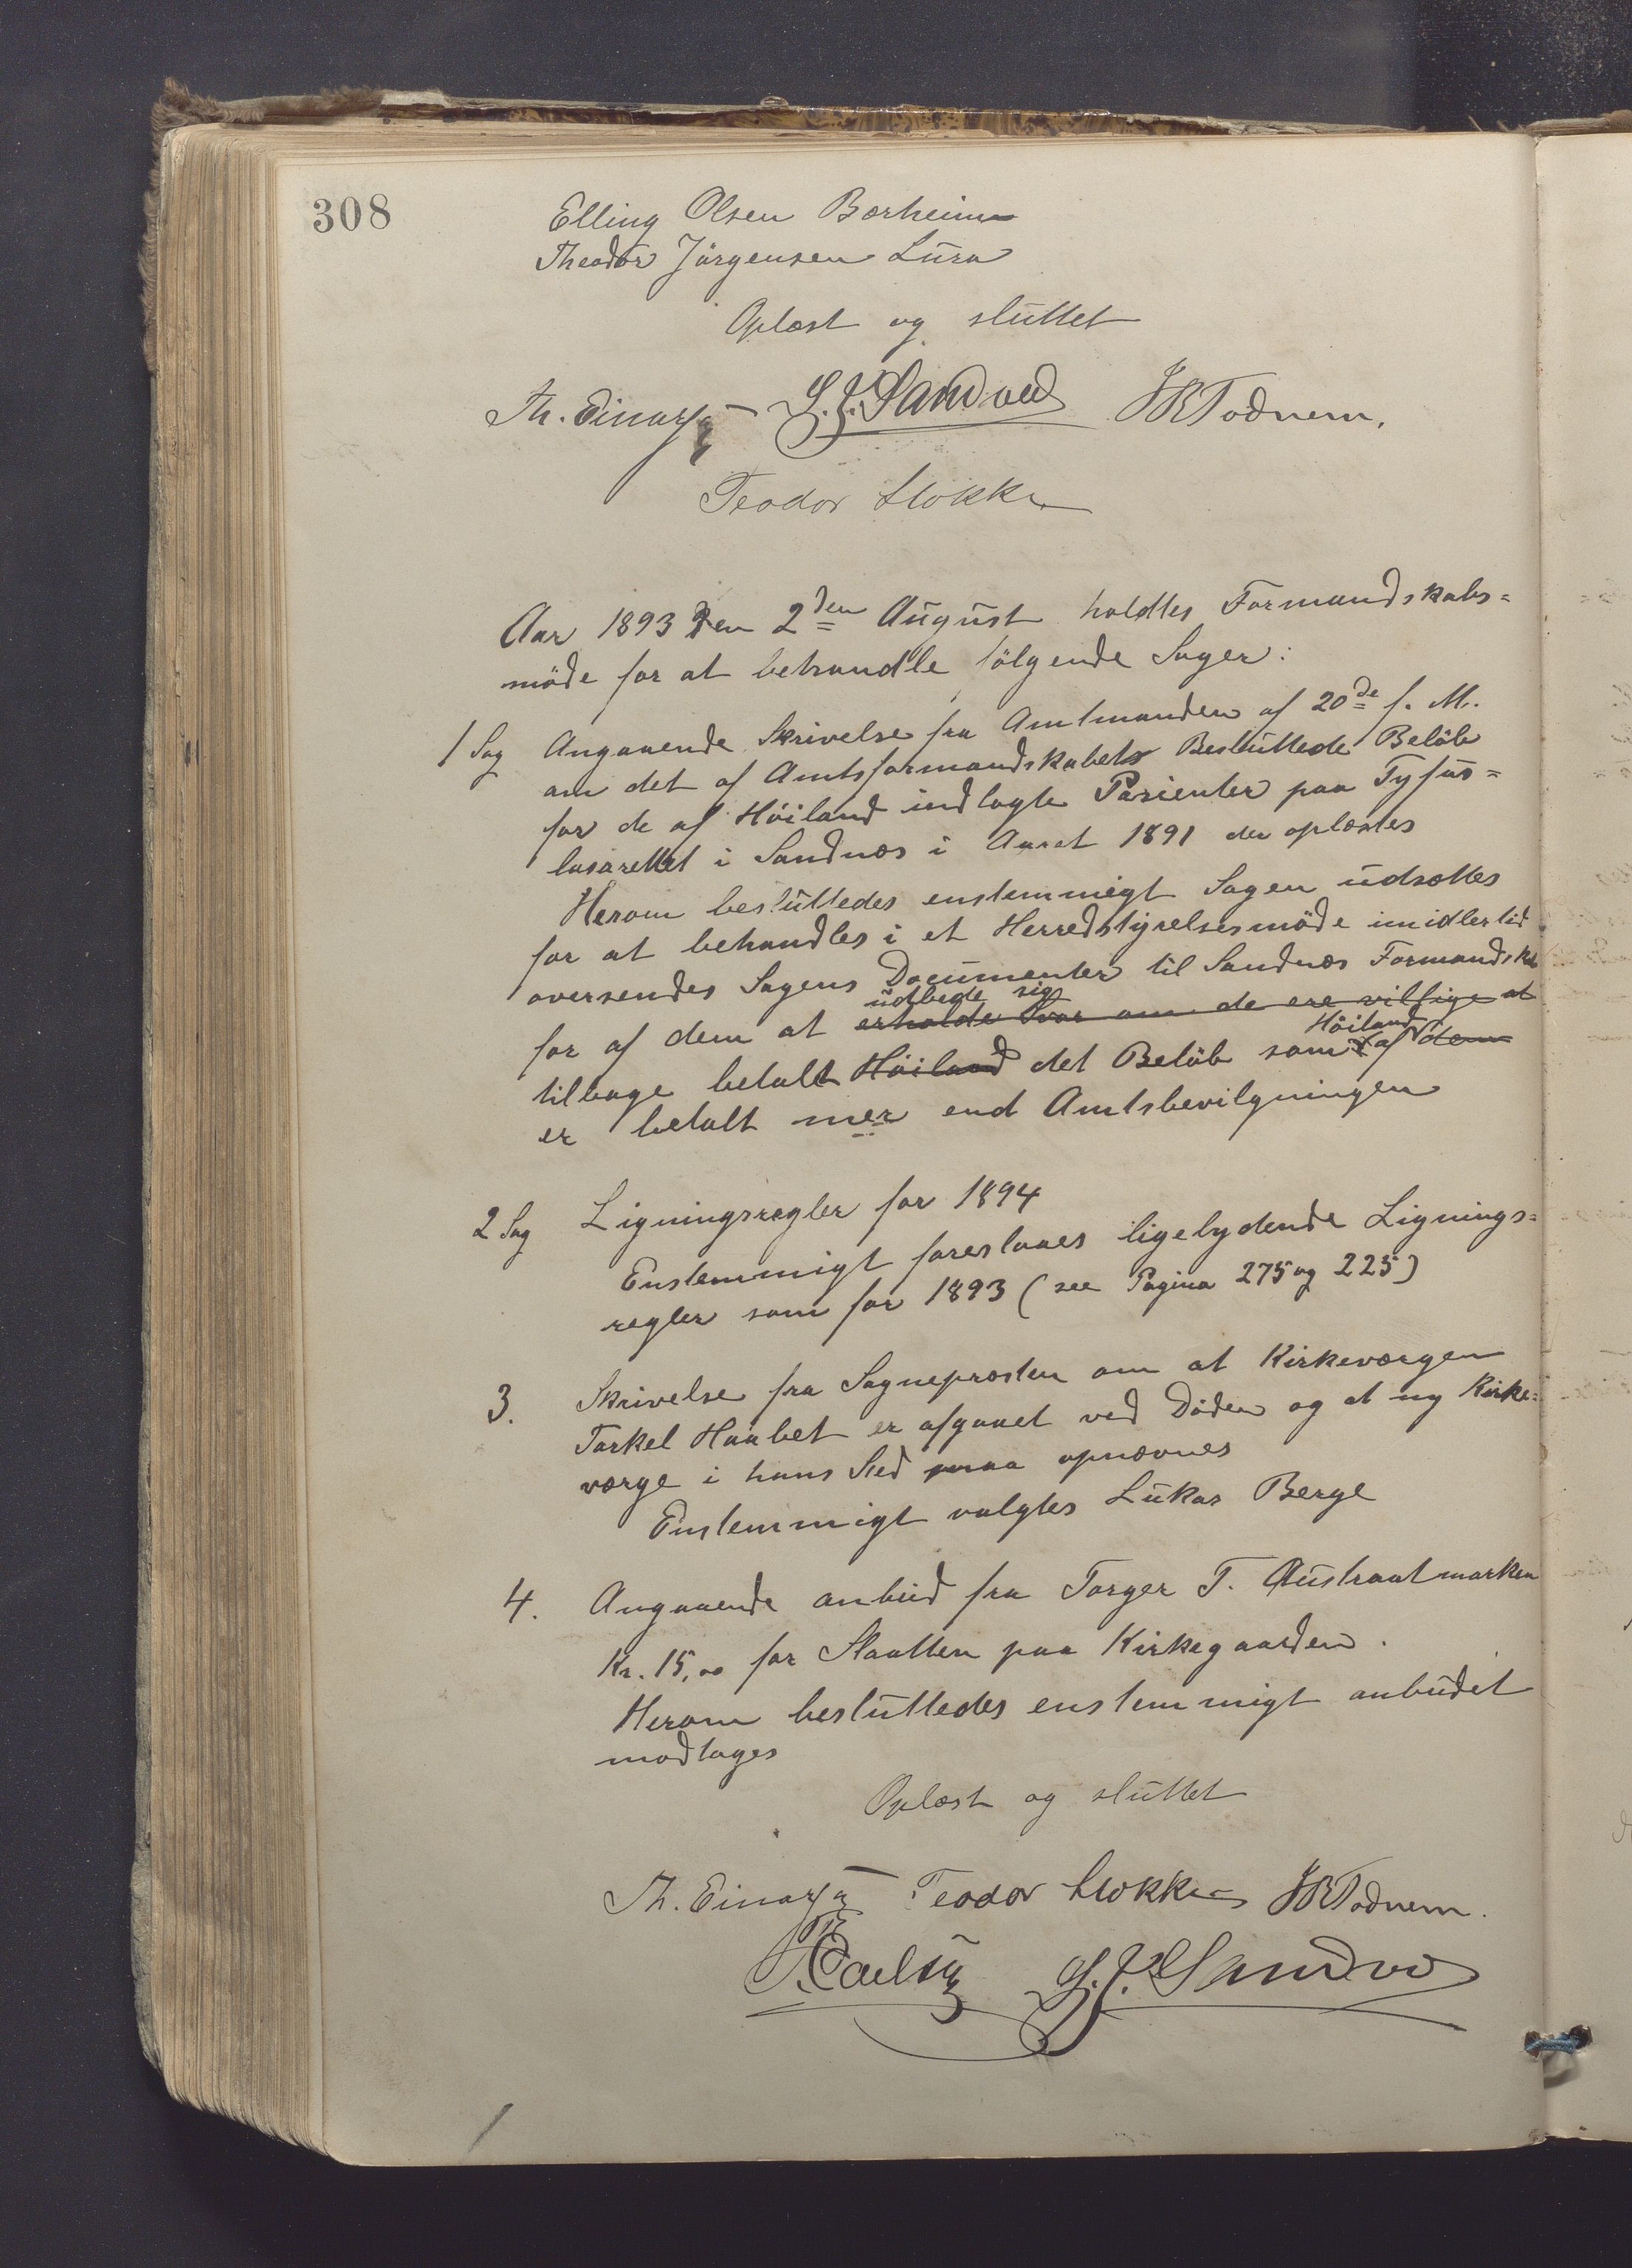 308
Elling Olsen Bærheim
Theodor Jörgensen Lura
Oplæst og sluttet
Th. Einarsen L. J. Sandved JBTodnem.
Teodor Stokke
Aar 1893 den 2den August holdtes Formandskabs=
möde for at behandle fölgende Sager:
1 Sag Angaaende Skrivelse fra Amtmanden af 20de f. M.
om det af Amtsformandskabets Besluttede Belöb
for de af Höiland indlagte Pasienter paa Tyfus=
lasarettet i Sandnæs i Aaret 1891 der oplæstes
Herom besluttedes enstemmigt Sagen udsættes
for at behandles i et Herredstyrelsesmöde imidlertid
oversendes Sagens Documenter til Sandnæs Formandskab
udbede sig
for af dem at erholde Svar om de ere villige at
Höiland
tilbage betalt Höiland det Belöb som af dem
er betalt mer end Amtsbevilgningen
2 Sag Ligningsregler for 1894
Enstemmigt foreslaaes ligelydende Lignings=
regler som for 1893 (see Pagina 275 og 225)
3. Skrivelse fra Sognepræsten om at Kirkeværgen
Torkel Haabet er afgaaet ved Döden og at ny Kirke=
værge i hans Sted maa opnævnes
Enstemmigt valgtes Lukas Berge
4. Angaaende anbud fra Torger T. Austraatmarken
Kr. 15,00 for Slaatten paa Kirkegaarden.
Herom besluttedes enstemmigt anbudet
modtages
Oplæst og sluttet
Th. Einarsen Teodor Stokke JBTodnem.
L. J. Sandved